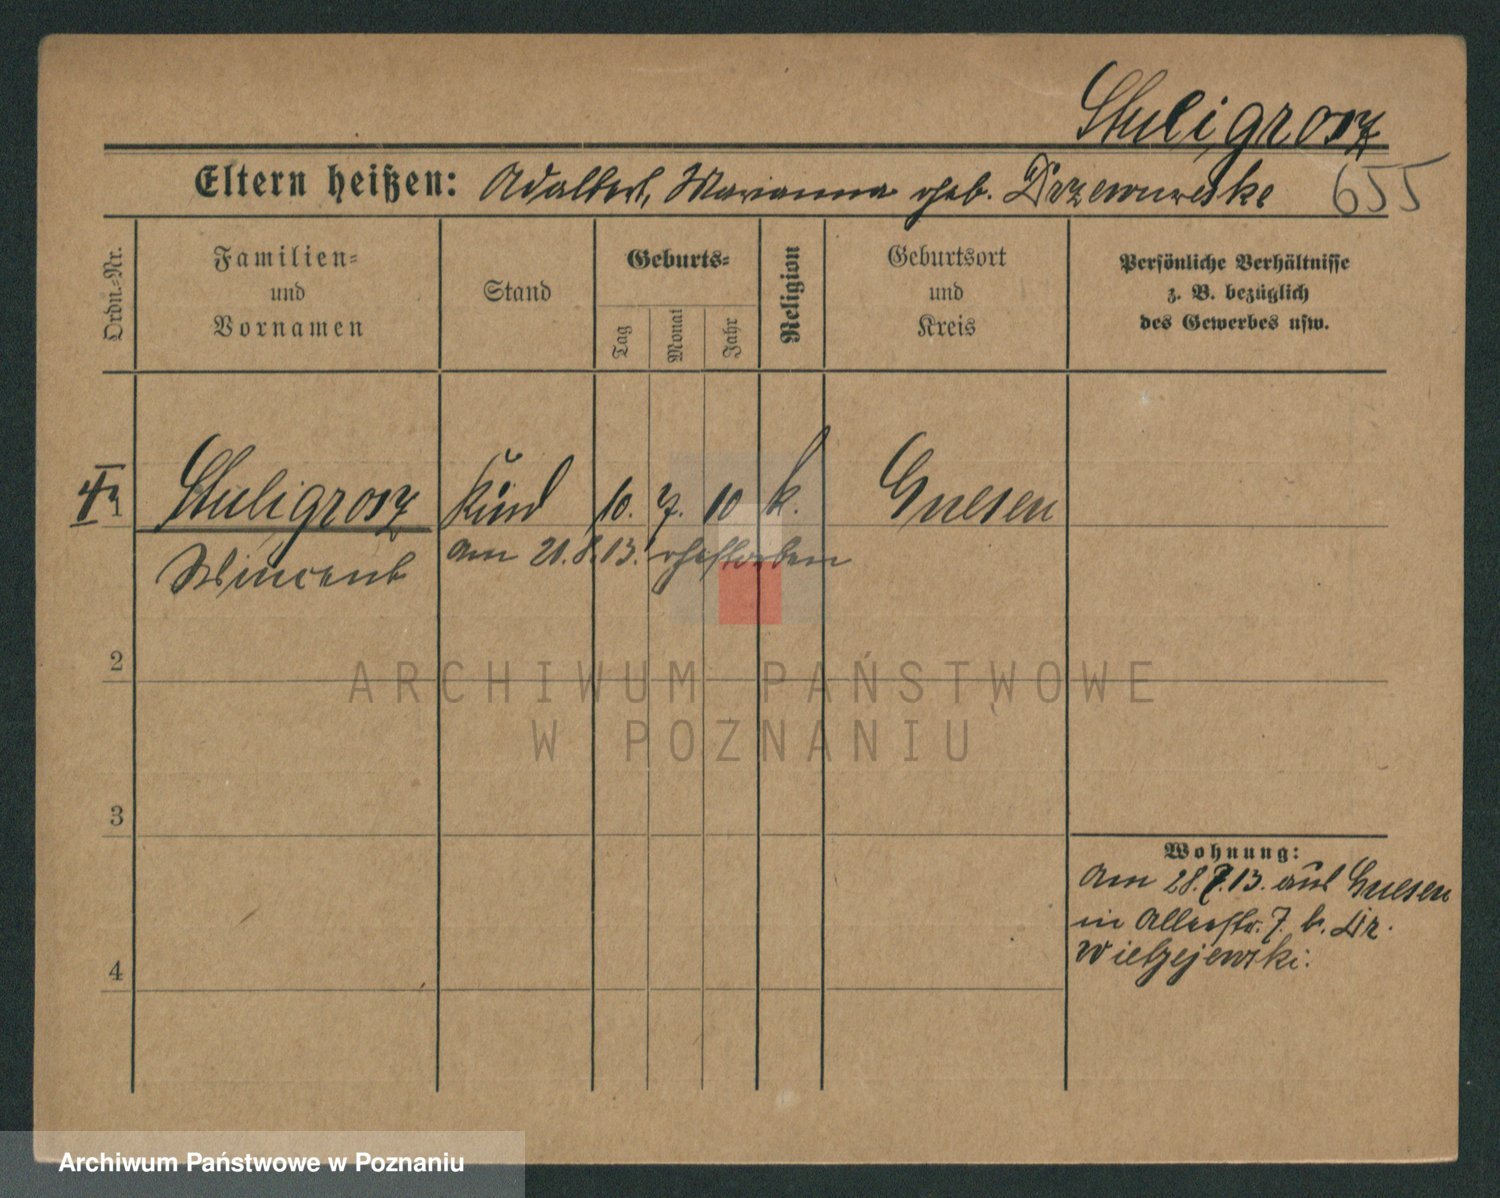 Stuligrosz
Eltern heißen: Adalbert, Marianna geb. Drzewuwska 655
Ordn.-Nr.
Familien-
und
Vornamen
Stand
Geburts-
Tag
Monat
Jahr
Religion
Geburtsort
und
Kreis
Persönliche Verhältnisse
z. B. bezüglich
des Gewerbes usw.
1 Stuligrosz Kind 10. 7. 10 k. Gnesen
Wincent am 21.8.13. gestorben
2
ARCHIWUM PAŃSTWOWE
W POZNANIU
3
Wohnung:
am 28.7.13. aus Gnesen
in Allerstr. 7. b. Dr.
Wielzejewski.
4
Archiwum Państwowe w Poznaniu